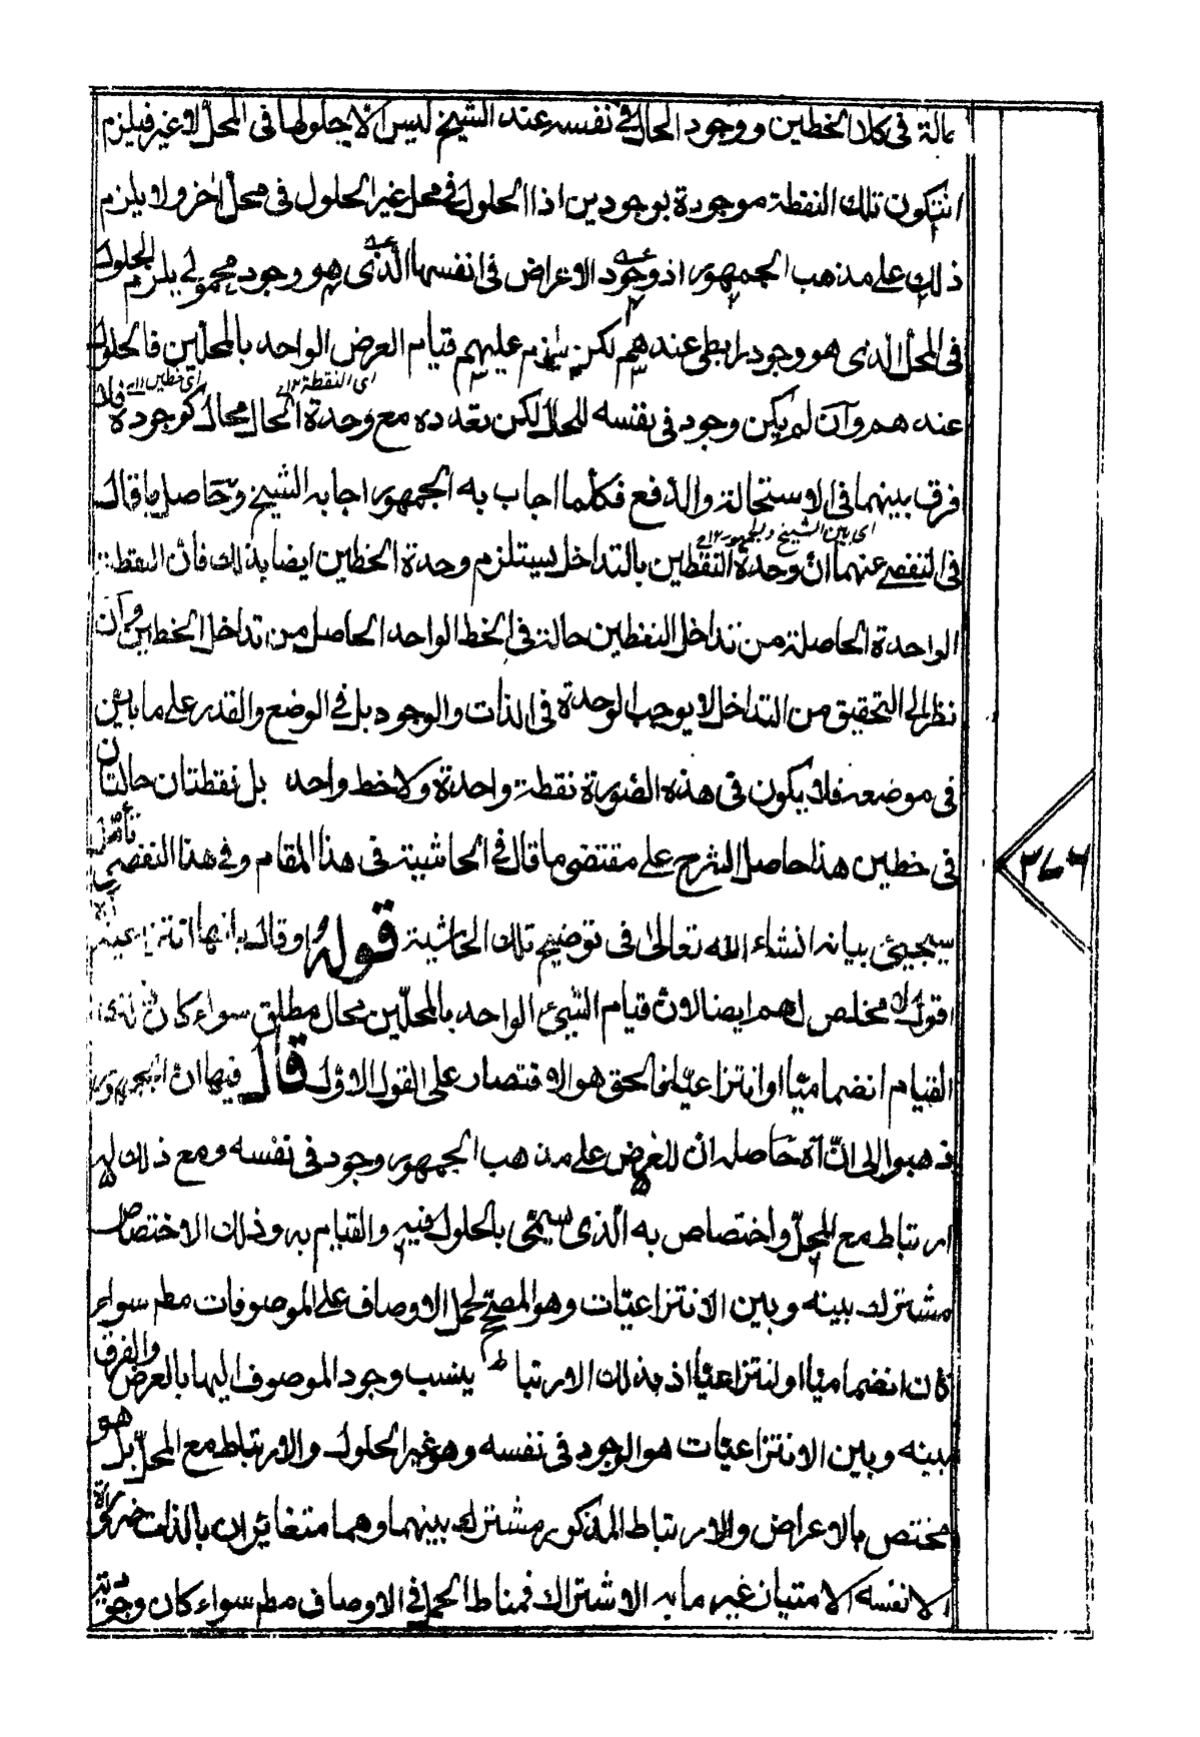 حالة فى كلا الخطين ووجود الحال فى نفسه عند الشيخ ليس الا حلولها فى المحل لا غير فيلزم
ان تكون تلك النقطة موجودة بوجودين اذ الحلول فى محل غير الحلول فى محل اخر ولا يلزم
ذلك على مذهب الجمهور اذ وجود الاعراض فى انفسها الذى هو وجود محمولى يلزم الحلول
فى المحل الذى هو وجود رابطى عندهم لكن يلزم عليهم قيام العرض الواحد بالمحلين فالحلول
اى النقطة ١٢ اى خطين ١٢
عندهم وآن لم يكن وجود فى نفسه للحال لكن تعدده مع وحدة الحال محال كوجوده فلا
فرق بينهما فى الاستحالة والدفع فكلما اجاب به الجمهور اجاب به الشيخ وحاصل ما قال
اى بين الشيخ والجمهور ١٢
فى التفصى عنهما ان وحدة النقطتين بالتداخل يستلزم وحدة الخطين ايضا بذلك فان النقطة
الواحدة الحاصلة من تداخل النقطتين حالة فى الخط الواحد الحاصل من تداخل الخطين وآن
نظر الى التحقيق من التداخل لا يوجب الوحدة فى الذات والوجود بل فى الوضع والقدر على ما بين
فى موضعه فلا يكون فى هذه الصورة نقطة واحدة ولا خط واحد بل نقطتان حالتان
فى خطين هذا حاصل الشرح على مقتضى ما قال فى الحاشية فى هذا المقام وفى هذا التفصى تأمل
سيجيئ بيانه انشاء الله تعالى فى توضيح تلك الحاشية قوله او قال بانها انتزاعية
اقول لا مخلص لهم ايضا لان قيام الشيئ الواحد بالمحلين محال مطلق سواء كان ذلك
القيام انضماميا او انتزاعيا فالحق هو الاقتصار على القول الاول قال فيها ان الجمهور
ذهبوا الى ان آه حاصله ان للعرض على مذهب الجمهور وجود فى نفسه ومع ذلك له
ارتباط مع المحل واختصاص به الذى يسمى بالحلول فيه والقيام به وذلك الاختصاص
مشترك بينه وبين الانتزاعيات وهو المصحح لحمل الاوصاف على الموصوفات مطم سواء
كان انضماميا او انتزاعيا اذ بذلك الارتباط ينسب وجود الموصوف اليها بالعرض والفرق
بينه وبين الانتزاعيات هو الوجود فى نفسه وهو غير الحلول والارتباط مع المحل بل هو
مختص بالاعراض والارتباط المذكور مشترك بينهما وهما متغائران بالذات ضرورة
الامتياز غير ما به الاشتراك فمناط الحمل فى الاوصاف مطم سواء كان
٣٤٦